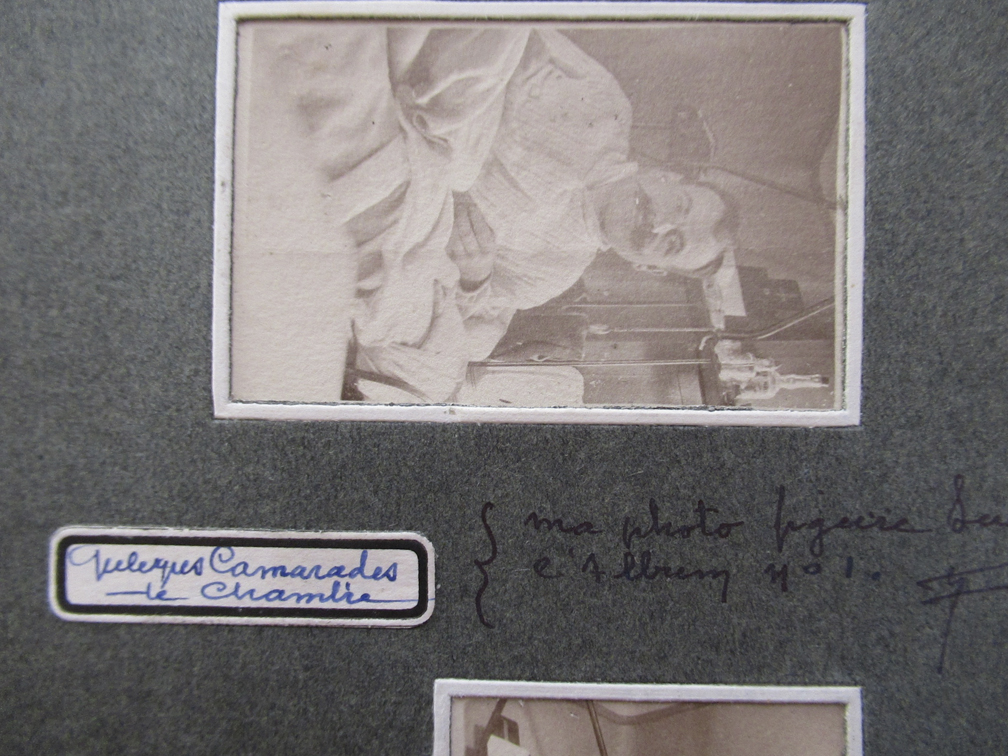 Quelques Camarades
de Chambre
ma photo figure Su
l'Album n° 1.